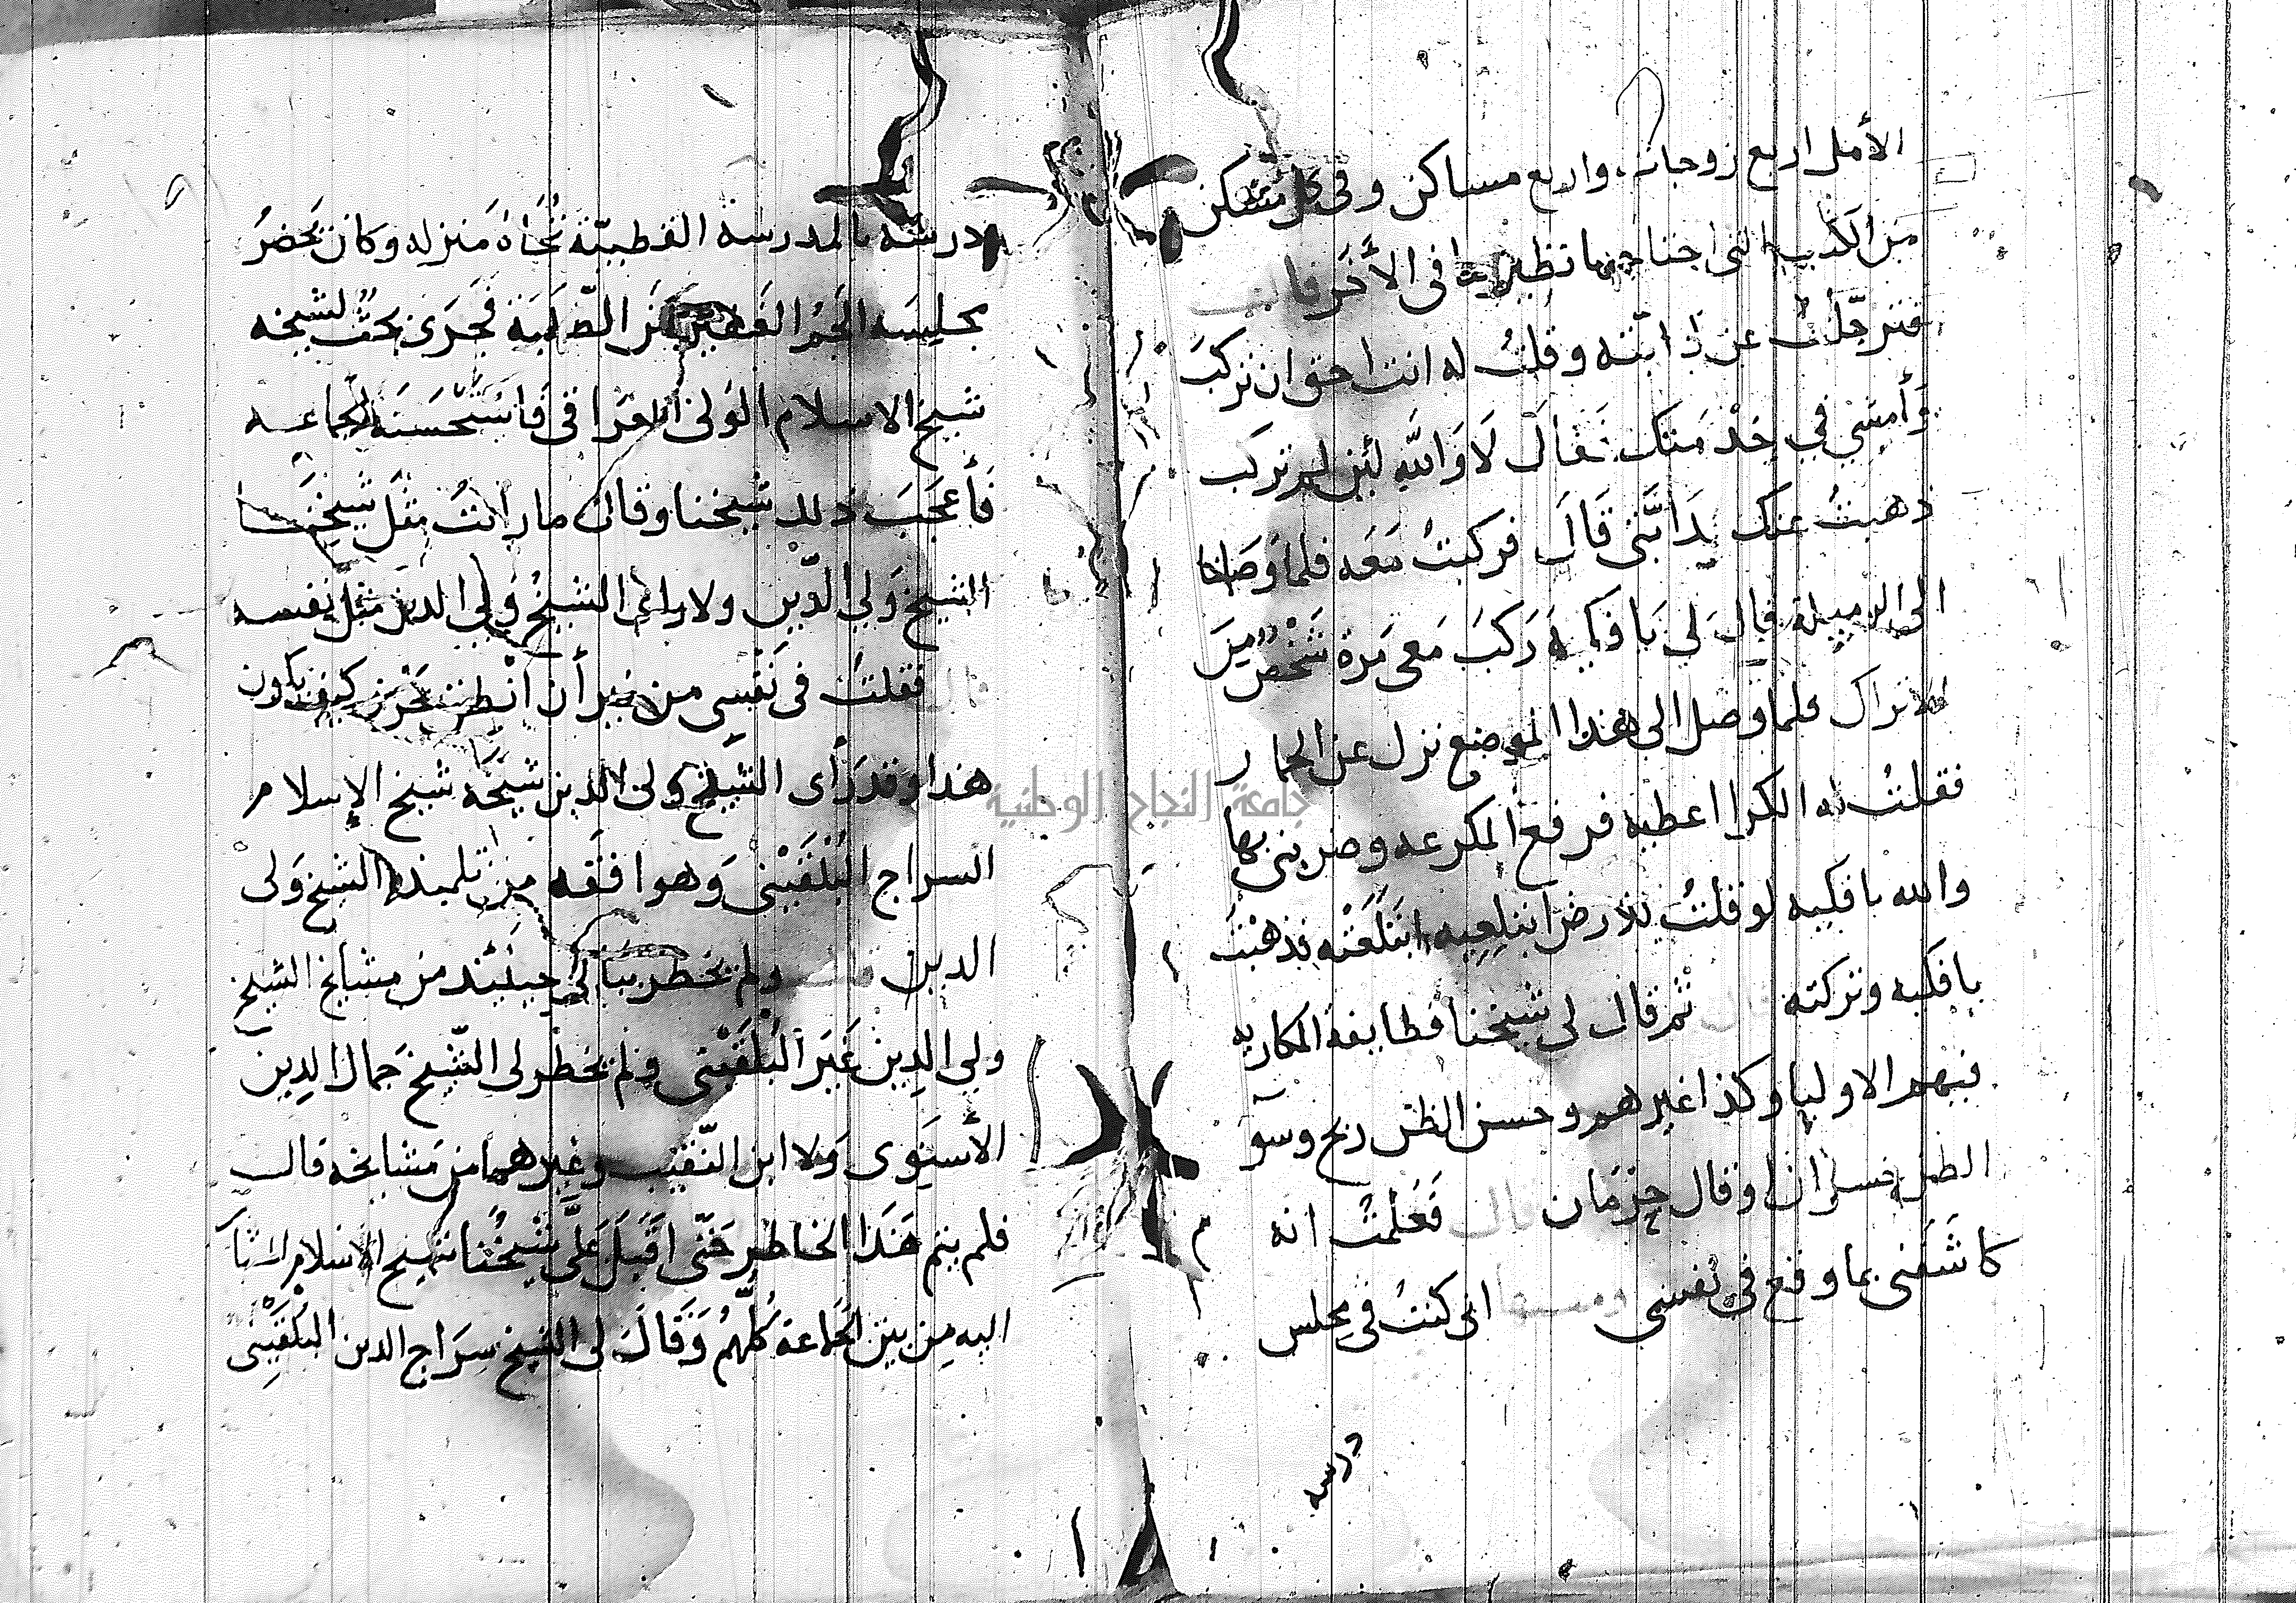 الأمل اربع زوجات واربع مساكن وفي كل مسكن
من الكتب التى احتاجها نظير ما فى الأخر قال
فترجّلت عن دابته وقلت له انت احق ان تركب
وَأمشي في خدْمتك فقال لَا وَاللّهِ لئن لم تركب
ذهبتُ عنك بدَابَّتى قَالَ فركبتُ مَعَه فلما وَصَلنا
الى الرميلة قال لي يا فكيه رَكبَ مَعى مَرة شَخْصٌ مِن
الاتراك فلما وصل الى هذا الموضع نزل عن الحمار
فقلتُ له الكرا اعطيه فرفع المكرعه وضربنى بها
والله يا فكيه لو قلتُ للارض ابتلعيه ابتَلَعَتْه فذهبْتُ
يا فكيه وتركته ثم قال لى شيخنا فطايفة المكاريه
فيهم الاوليا وكذا غيرهم وحسن الظن ربح وسوٓ
الظن خسران او قال حِرْمَان قال فَعَلمْتُ انه
كاشَفَنى بما وقع فى نفسي ومنها انى كنتُ في مجلس
درسه
درسه بالمدرسة القطبيّة تُجَاهَ مَنزله وكان يَحضرُ
مجلِسَه الجَمُّ الغَفيرُ مِنَ الطّلَبَة فَجَرَى بحثٌ لشيخه
شيخ الاسلام الوَلى العِرَاقى فَاسْتَحْسَنَه الجماعه
فَأَعجَبَ ذلك شيخنا وقال ما رأيتُ مِثْلَ شيخِنَا
الشيخ وَلي الدّين ولا راى الشيخُ وَلي الدين مثلَ نفسه
قال فقلتُ فى نَفْسِى من غير أن انْطِقَ بحَرْفٍ كيف يكون
هذا وقد رَأى الشيخ ولى الدين شيخَه شيخ الإسلام
السراج البُلْقَيْنى وَهو افقَه مِن تلميذه الشيخ وَلى
الدين ولم يَخطر ببَالى حينَئِذ من مشايخ الشيخ
ولي الدِين غَيَر البُلقَيْنى ولم يخطر لى الشّيخ جَمال الدين
الأسنوى وَلا ابن النّقيب وغيرهما من مَشايخه قال
فلم يتم هَذَا الخاطِر حَتّى اقبَلَ عَلَىَّ شَيْخُنا شيخ الاسلام
اليه مِن بين الجماعة كُلّهِمْ وَقَالَ لى الشيخ سرَاج الدين البُلْقَيْنى